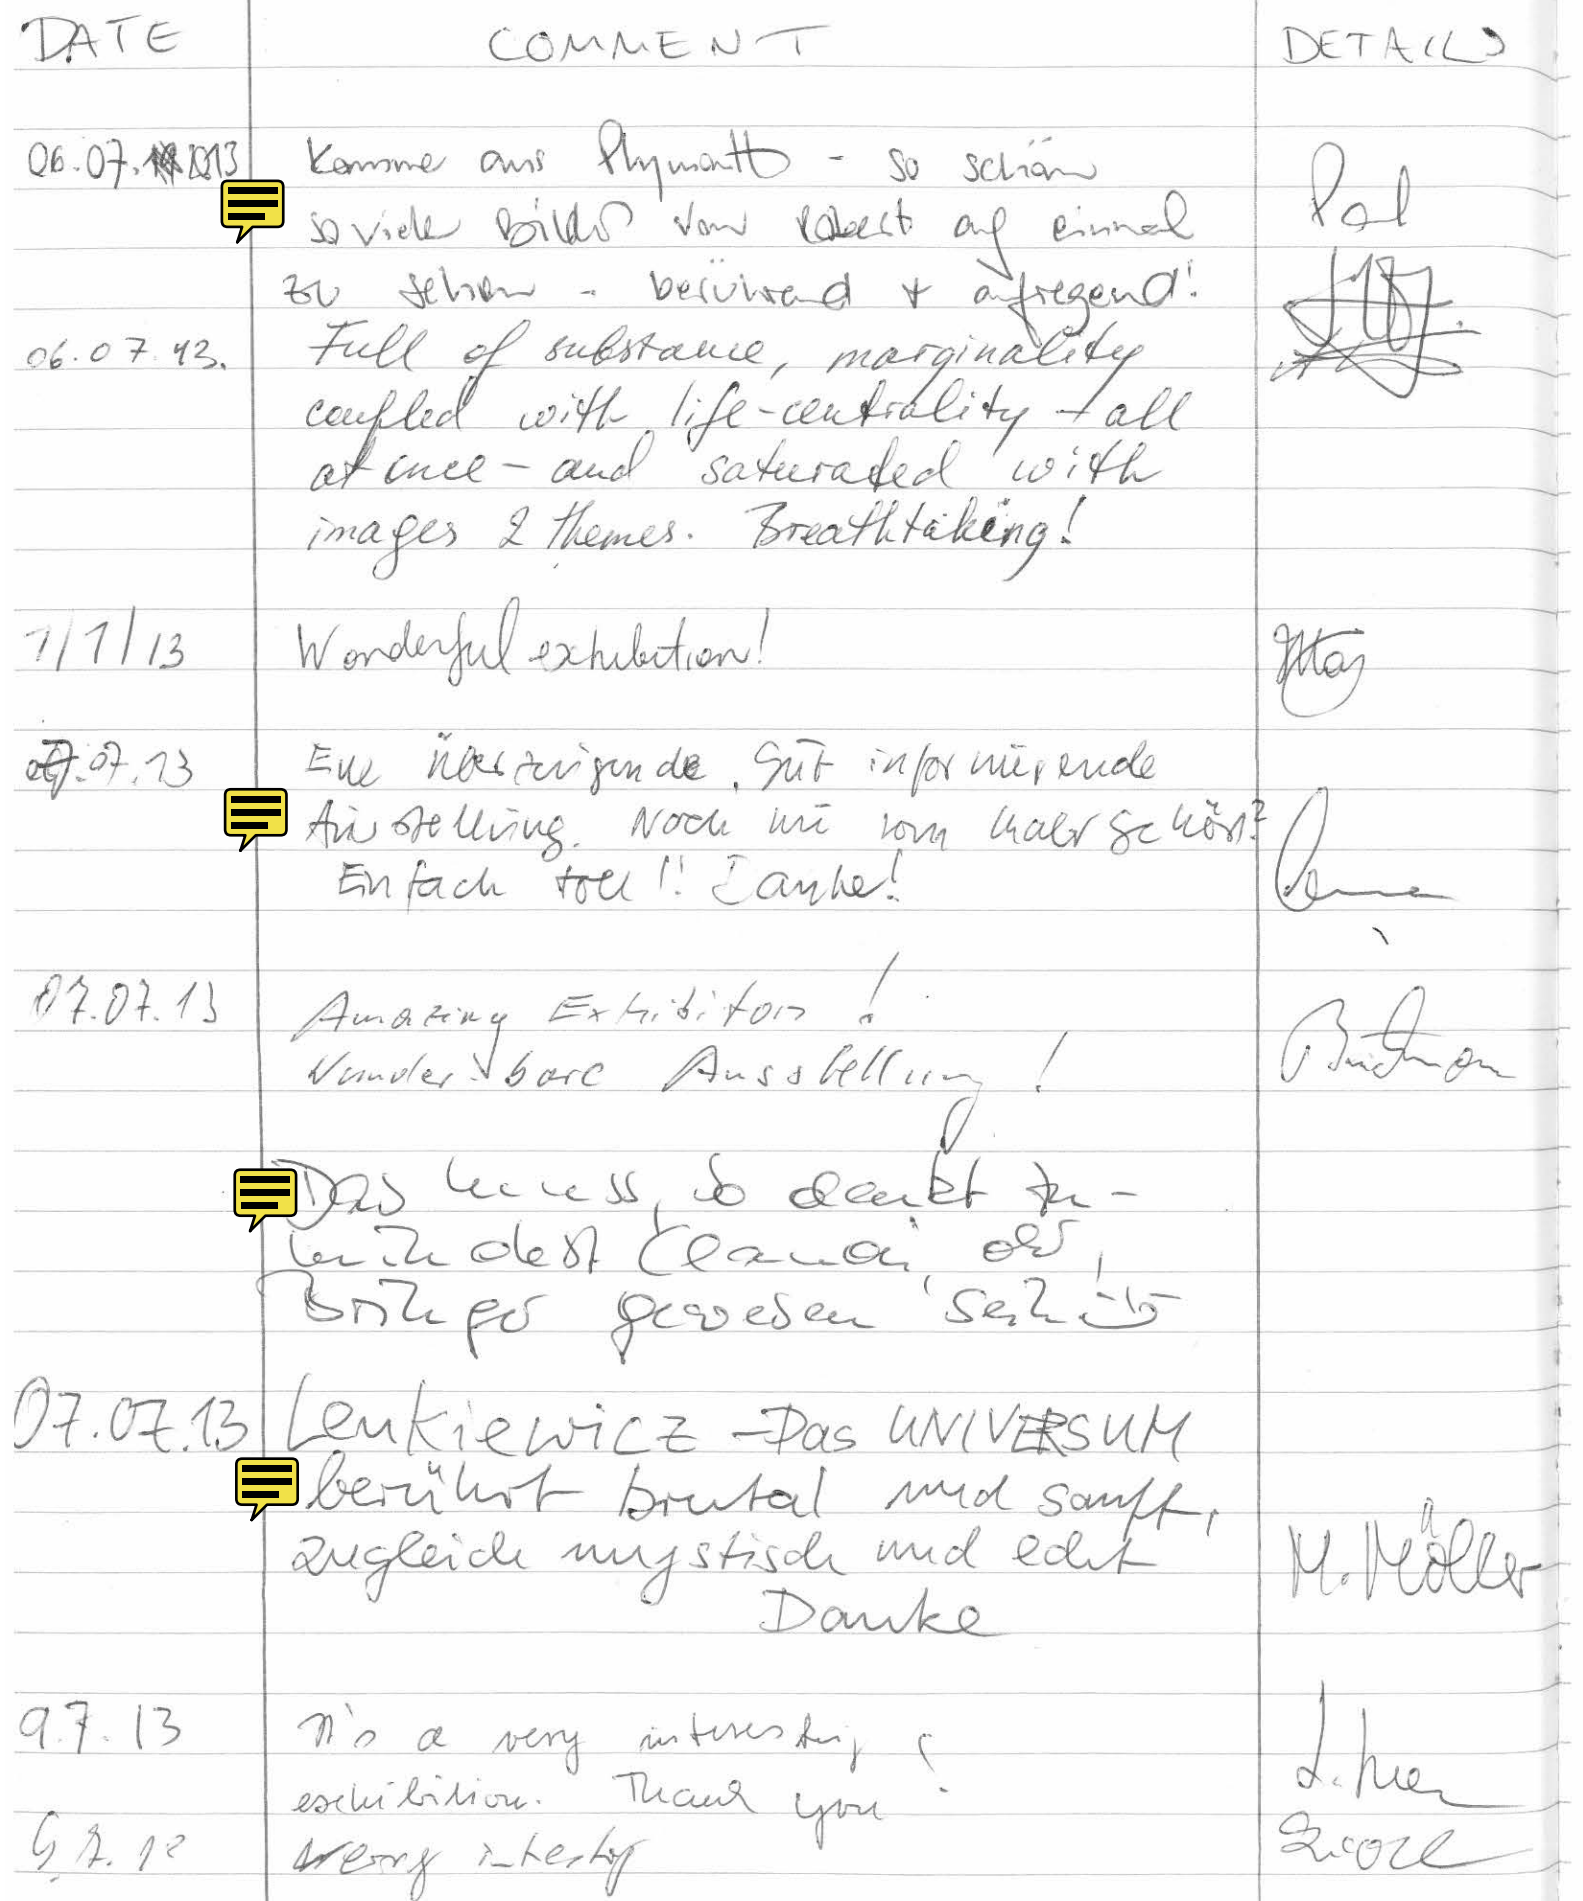 DATE COMMENT DETAILS
06.07.2013 Komme aus Plymouth - so schön
so viele Bilder von Robert auf einmal
zu sehen - berührend + aufregend!
06.07.13. Full of substance, marginality
coupled with life-centrality - all
at once - and saturated with
images & themes. Breathtaking!
7/7/13 Wonderful exhibition!
07.07.13 Eine überzeugende, gut informierende
Ausstellung. Noch nie vom Maler gehört?
Einfach toll!! Danke!
07.07.13 Amazing Exhibition!
Wunderbare Ausstellung!
Das muss, so denkt zu-
mindest
gewesen sein
07.07.13 Lenkiewicz - Das UNIVERSUM
berührt brutal und sanft,
zugleich mystisch und echt M. Möller
Danke
9.7.13 It's a very interesting
exhibition. Thank you!
9.7.13 verry